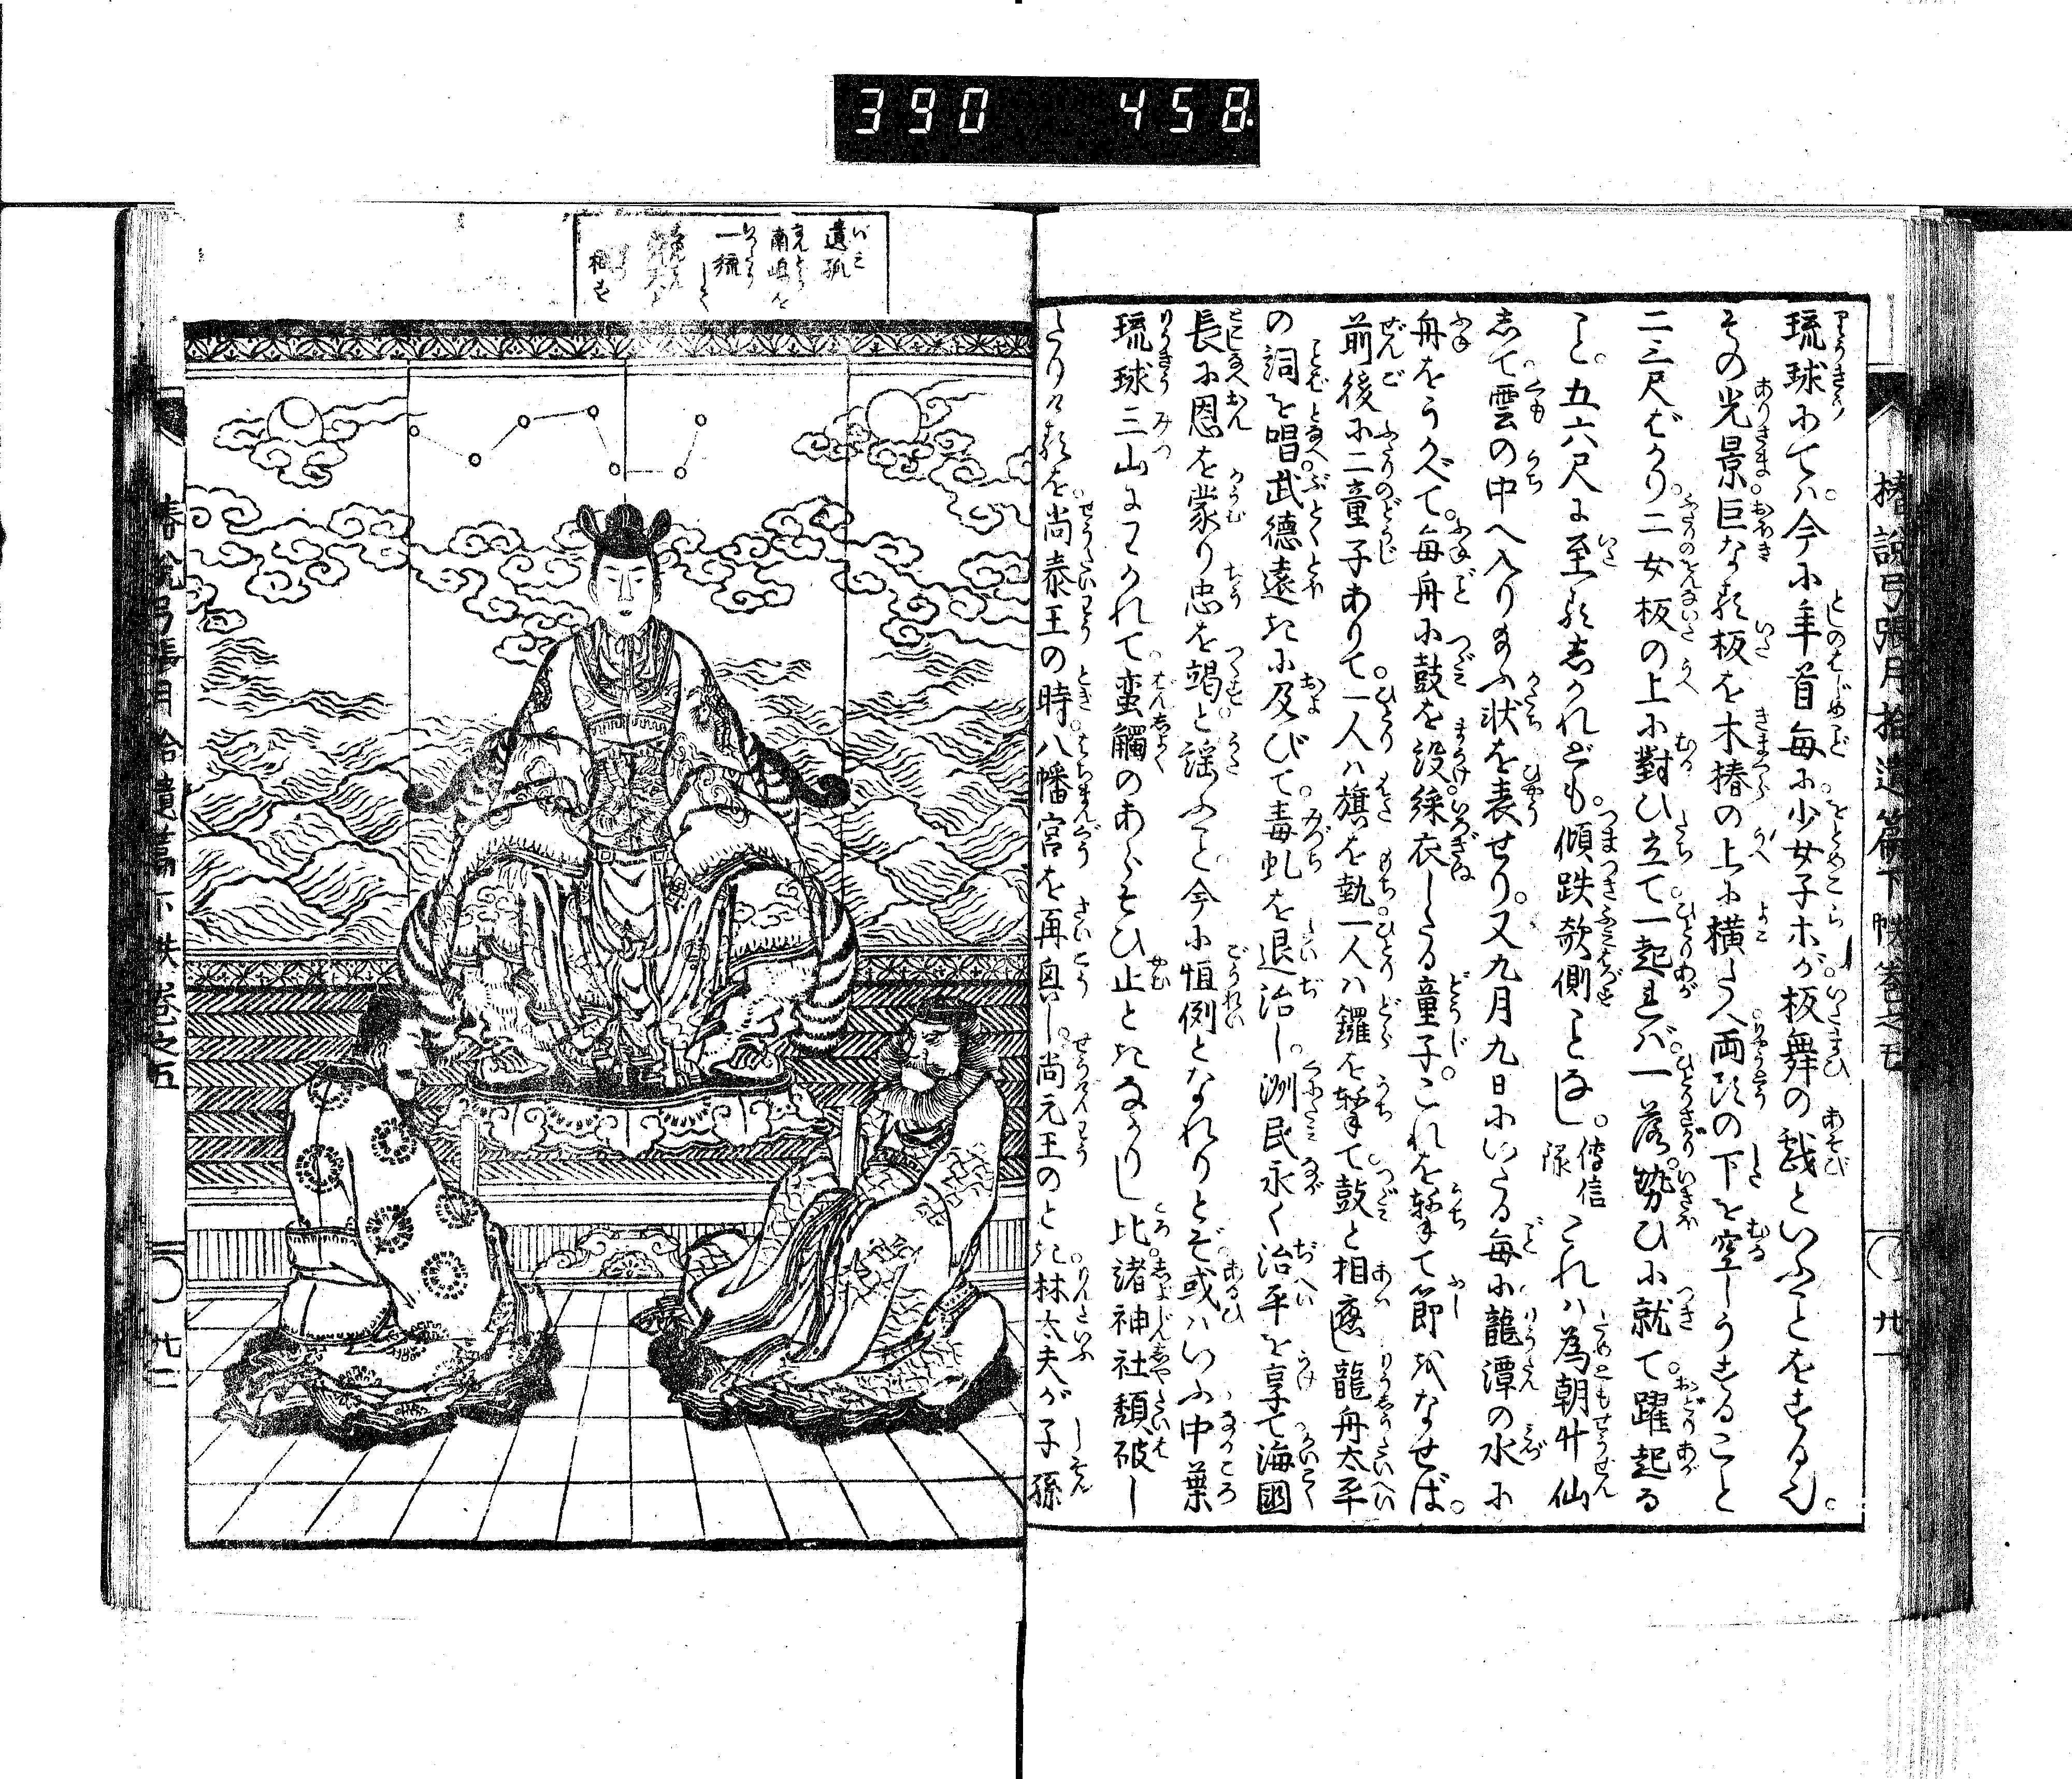 390 458.
椿説弓張月拾遺篇下帙巻之五 〇 廿一
琉球にては。今に年首毎に。少女子ホが。板舞の戯といふことをする也。
その光景。巨なる板を木椿の上に横たへ。両頭の下を空しうすること
二三尺ばかり。二女板の上に對ひ立て。一起れバ。一落。勢ひに就て。躍起る
こと。五六尺に至る。しかれども。傾跌欹側ことなし。傳信録 これハ為朝升仙
して。雲の中へ入り給ふ状を表せり。又九月九日にいたる毎に。龍潭の水に
舟をうかべて。毎舟に鼓を設け。綵衣したる童子。これを撃て節をなせば。
前後に二童子ありて。一人ハ旗を執。一人ハ鑼を撃て。鼓と相應し。龍舟太平
の詞を唱。武徳遠きに及びて。毒虬を退治し。洲民永く治平を享て。海國
長に恩を蒙り忠を竭と謡ふこと。今に恒例となれりとぞ。或ハいふ。中葉
琉球三山にわかれて。蛮觸のあらそひ止ときなかりし比。諸神社頽破し
たりけるを。尚泰王の時。八幡宮を再興し。尚元王のとき。林太夫が子孫
遺孤
南嶋を
一統
して
椿説弓張月拾遺篇下帙巻之五 〇 廿二